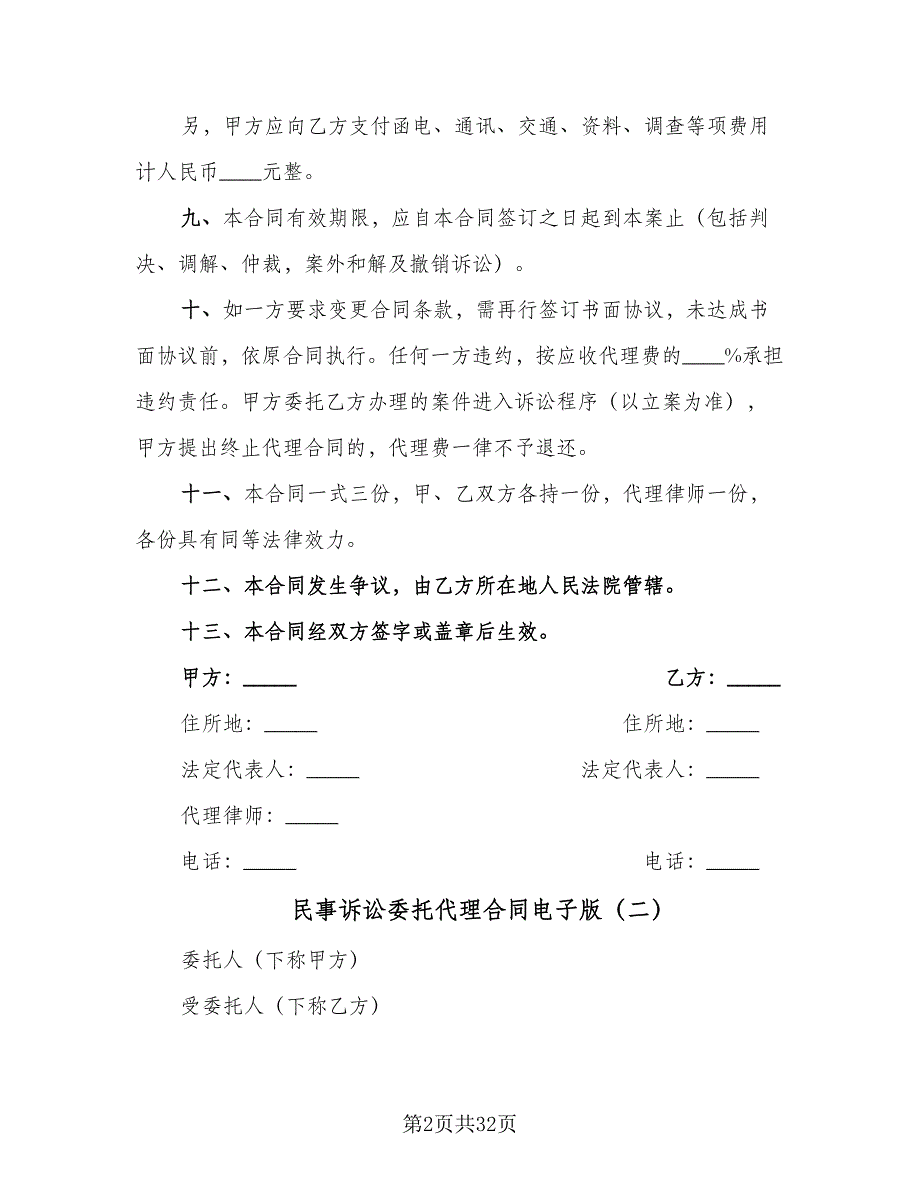 另，甲方应向乙方支付函电、通讯、交通、资料、调查等项费用
计人民币____元整。
九、本合同有效期限，应自本合同签订之日起到本案止（包括判
决、调解、仲裁，案外和解及撤销诉讼）。
十、如一方要求变更合同条款，需再行签订书面协议，未达成书
面协议前，依原合同执行。任何一方违约，按应收代理费的____%承担
违约责任。甲方委托乙方办理的案件进入诉讼程序（以立案为准），
甲方提出终止代理合同的，代理费一律不予退还。
十一、本合同一式三份，甲、乙双方各持一份，代理律师一份，
各份具有同等法律效力。
十二、本合同发生争议，由乙方所在地人民法院管辖。
十三、本合同经双方签字或盖章后生效。
甲方：_____ 乙方：_____
住所地：_____ 住所地：_____
法定代表人：_____ 法定代表人：_____
代理律师：_____
电话：_____ 电话：_____
民事诉讼委托代理合同电子版（二）
委托人（下称甲方）
受委托人（下称乙方）
第2页共32页